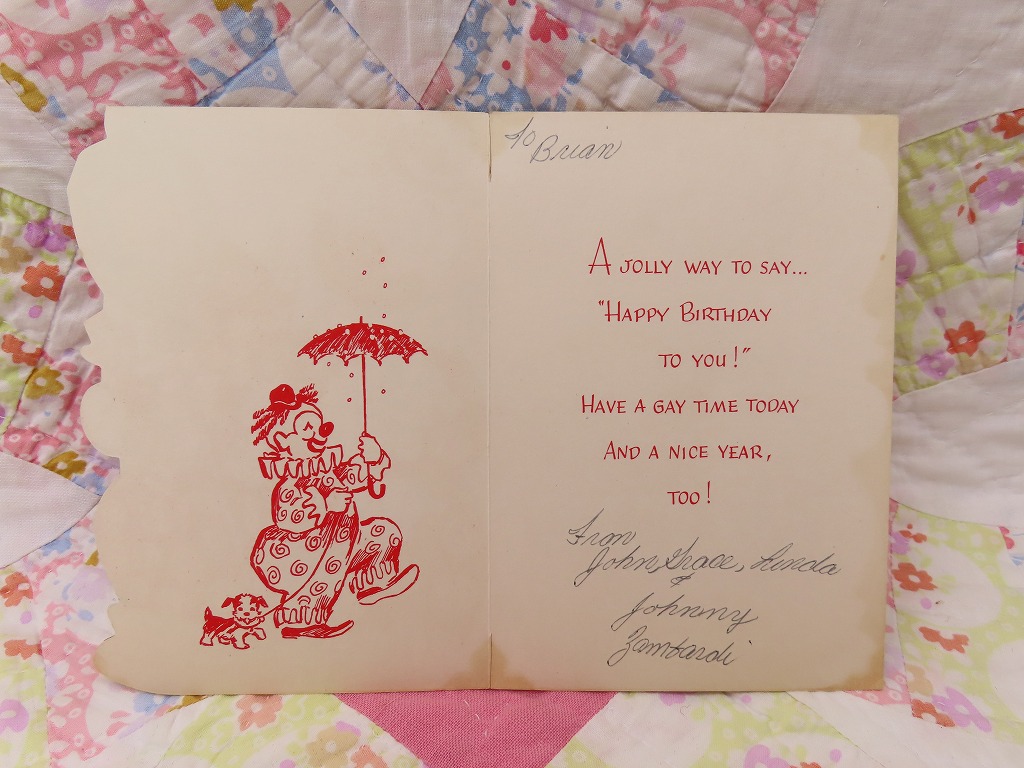 To
Brian
A JOLLY WAY TO SAY...
"HAPPY BIRTHDAY
TO YOU!"
HAVE A GAY TIME TODAY
AND A NICE YEAR,
TOO!
From
John, Grace, Linda
&
Johnny
Zambardi